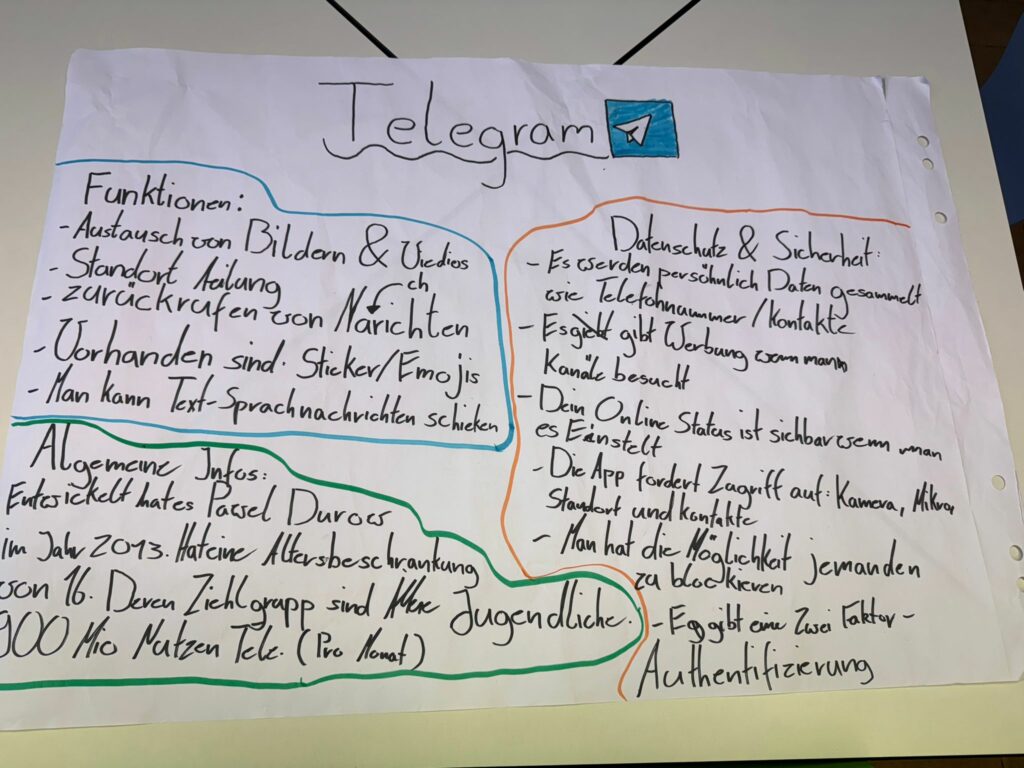 Telegram
Funktionen:
- Austausch von Bildern & Viedios
- Standort teilung
ch
- zurückrufen von Narichten
- Vorhanden sind. Sticker/Emojis
- Man kann Text-Sprachnachrichten schicken
Algemeine Infos:
Entwickelt hat es Pawel Durow
im Jahr 2013. Hat eine Altersbeschrankung
von 16. Deren Ziehlgrupp sind Jugendliche.
900 Mio Nutzen Tele. (Pro Monat)
Datenschutz & Sicherheit:
- Es werden persöhnlich Daten gesammelt
wie Telefohnnummer/Kontakte
- Es gibt Werbung wenn mann
Kanäle besucht
- Dein Online Status ist sichbar wenn man
es Einstelt
- Die App fordert Zugriff auf: Kamera, Mikro,
Standort und Kontakte
- Man hat die Möglichkeit jemanden
zu blockieren
- Es gibt eine Zwei Faktor-
Authentifizierung